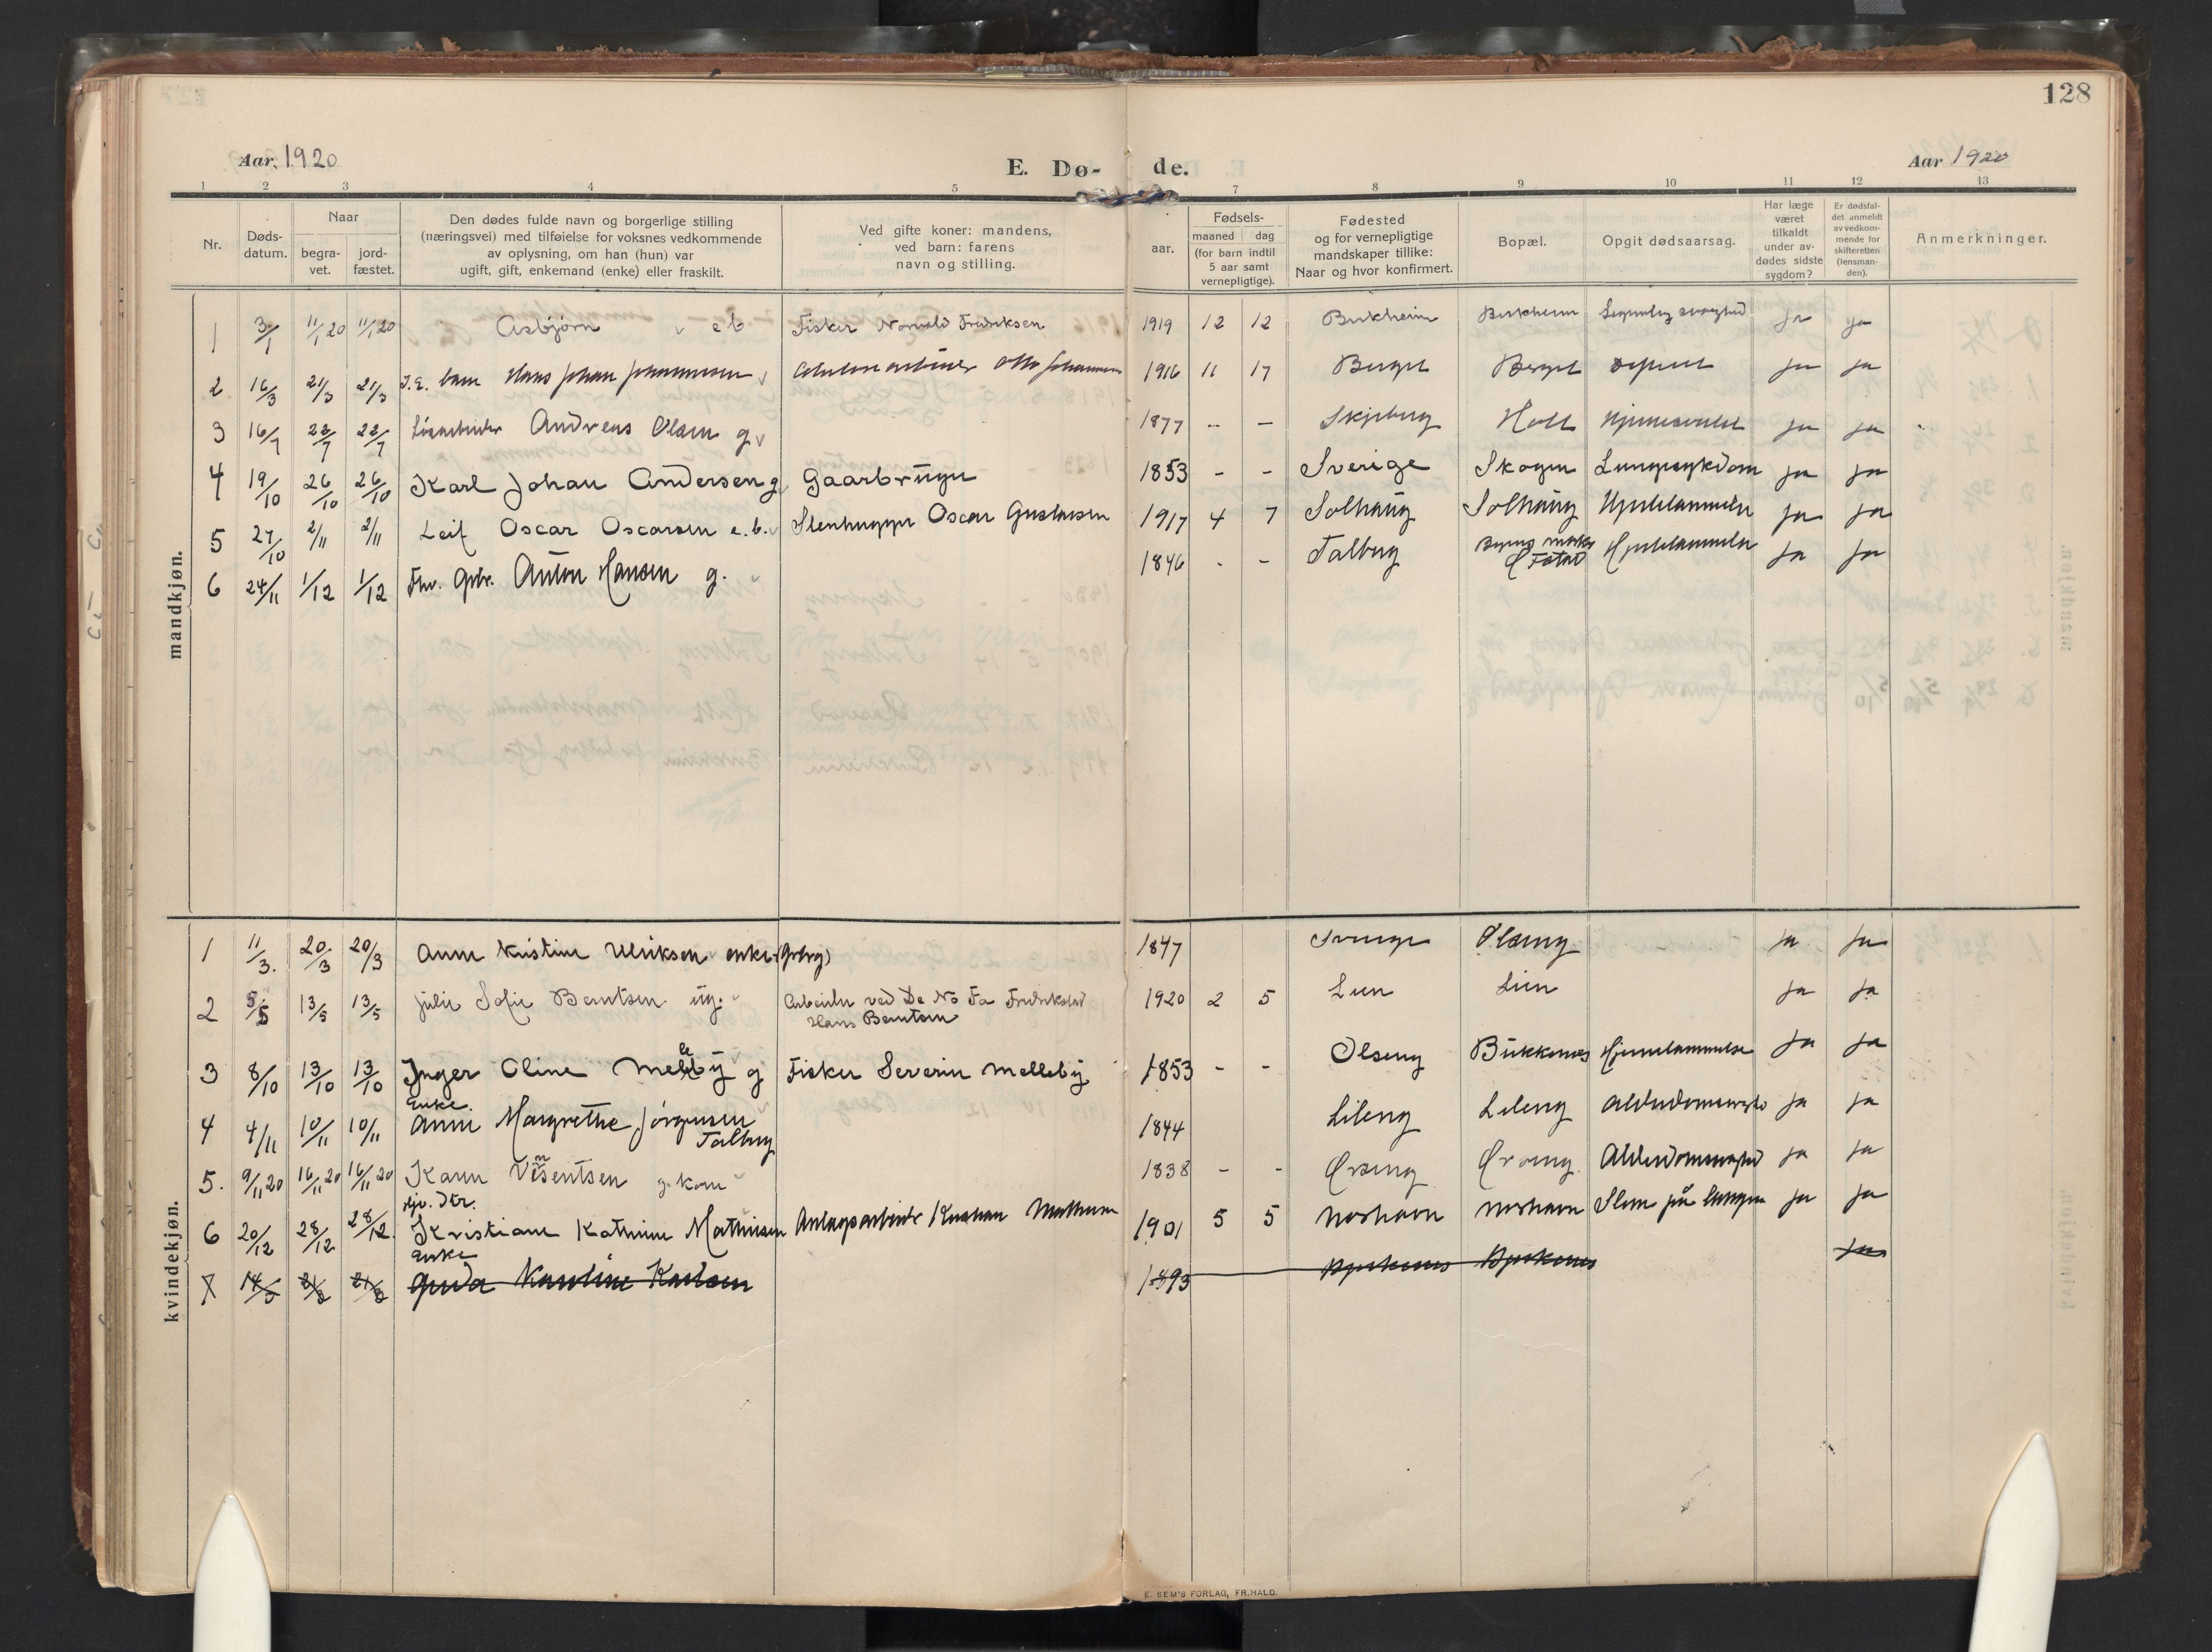 128
Aar 1920
E. Dø- de.
Aar 1920
1 2 3 4 5 7 8 9 10 11 12 13
Nr.
Døds-
datum.
Naar
begra-
vet.
jord-
fæstet.
Den dødes fulde navn og borgerlige stilling
(næringsvei) med tilføielse for voksnes vedkommende
av oplysning, om han (hun) var
ugift, gift, enkemand (enke) eller fraskilt.
Ved gifte koner: mandens,
ved barn: farens
navn og stilling.
aar.
Fødsels-
maaned dag
(for barn indtil
5 aar samt
vernepligtige).
Fødested
og for vernepligtige
mandskaper tillike:
Naar og hvor konfirmert.
Bopæl.
Opgit dødsaarsag.
Har læge
været
tilkaldt
under av-
dødes sidste
sygdom?
Er dødsfal-
det anmeldt
av vedkom-
mende for
skifteretten
(lensman-
den).
Anmerkninger.
mandkjøn.
1 3/1 11/1 20 11/1 20 Asbjørn e b Fisker Norvald Fredriksen 1919 12 12 Birkheim Birkheim ja ja
2 16/3 21/3 21/3 barn Hans Johan Johannesen Otto Johannesen 1916 11 17 Berget Berget ja ja
3 16/7 22/7 22/7 Andreas Olsen g. 1877 - - Skjeberg Holt ja ja
4 19/10 26/10 26/10 Karl Johan Andersen g. Gaarbruger 1853 - - Sverige Skogen Lungesykdom ja ja
5 27/10 2/11 2/11 Leif Oscar Oscarsen e. b. Stenhugger Oscar Gustavsen 1917 4 7 Solhaug Solhaug Hjertelammelse ja ja
6 24/11 1/12 1/12 Fhv. Gbr. Anton Hansen g. 1846 - - Talberg Hjertelammelse ja ja
kvindekjøn.
1 11/3. 20/3 20/3 Anne Kristine Ulriksen enke 1847 Sverige Olseng ja ja
2 5/5 13/5 13/5 Julie Sofie Berntsen ug. Arbeider ved De No Fa Fredrikstad
Hans Berntsen 1920 2 5 Lien Lien ja ja
3 8/10 13/10 13/10 Inger Oline Melleby g Fisker Severin Melleby 1853 - - Olseng Bukkenes Hjertelammelse ja ja
Enke.
4 4/11 10/11 10/11 Anne Margrethe Jørgensen
Talberg 1844 Lileng Lileng ja ja
5. 9/11 20 16/11 20 16/11 20 Karen Vinsentsen g. kone 1838 - - Øraeng Øraeng ja ja
6 20/12 28/12 28/12. Kristiane Katrine Mathisen Anlagsarbeider Kristian Mathisen 1901 5 5 Norhavn Norhavn Slim på lungen ja ja
Enke
7 14/5 21/5 21/5 Karoline Karlsen 1893 ja
E. SEM'S FORLAG, FR.HALD.